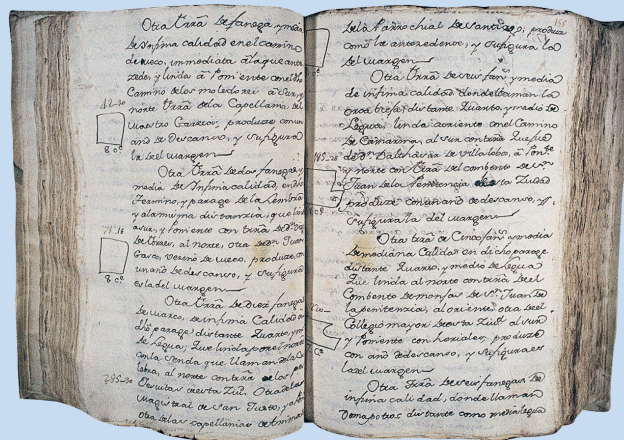 Otra trrā de fanega y media
de Infima calidad en el camino
de Meco, immediata a la que ante
zede, y linda a Poniente con el dho
Camino de los molederos a sur, y
norte trrā de la Capellania del
Maestro Garrozo, produze con un
año de Descanso, y su figura
la del margen
Otra trrā de dos fanegas, y
media de Infima calidad, en dho
termino, y parage de la
y a la misma distancia, que linda
a sur, y Poniente con trrā de Dn
al norte, otra de Dn Juan
vecino de Meco, produze, con
un año de descanso, y su figura
es la del margen
Otra trrā de diez fanegas
de marco, de infima Calidad en
dho parage distante Quarto, y mo
de Legua, que linda por el norte
con la Senda que llaman de la
al norte con trrā de los Ps
Jesuitas de esta Zid. Otra de la
Magistral de San Justo, y a Pte
otra de las capellanias de Animas
42-30
8 ce
71-16
8 ce
285-30
155
de la Parrochial de Santiago, produze
como la antezedente, y su figura la
del margen
Otra trrā de seis fans y media
de infima calidad donde llaman la
distante Quarto, y medio de
Legua, linda a oriente con el Camino
de Camarma, al sur con trrā que fue
de Dn Balthasar de Villalobos, a Ponte
y norte con trrā del combento de Sn
Juan de la Penitencia de esta Ziudad
produze con un año de descanso, y
su figura la del margen
Otra trrā de Cinco fans y media
de mediana Calidad en dicho parage
distante Quarto, y medio de Legua
que linda al norte con trrā de el
Combento de Monjas de Sn Juan de
la penitenzia, al oriente otra de el
Collegio mayor de esta Zid al sur
y Poniente con Heriales, produze
con año de descanso, y su figura es
la del margen
Otra trrā de seis fanegas de
infima calidad, donde llaman
distante como media legua
185-20